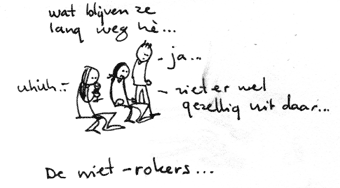 wat blijven ze
lang weg hè...
ja...
uhuh...
ziet er wel
gezellig uit daar...
De niet-rokers...